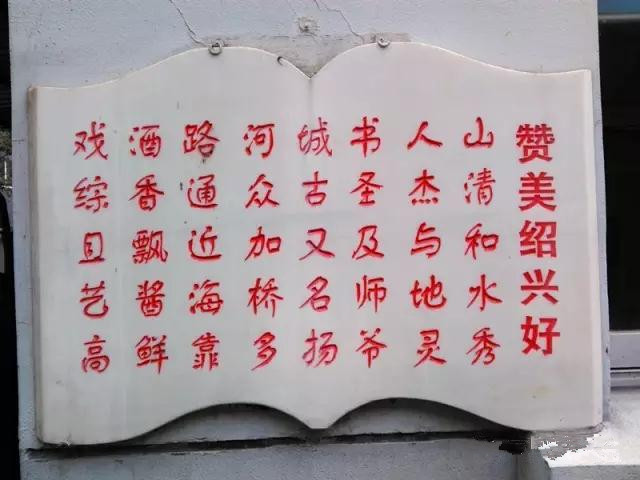 赞美绍兴好
山清和水秀
人杰与地灵
书圣及师爷
城古又名扬
河众加桥多
路通近海靠
酒香飘酱鲜
戏综且艺高